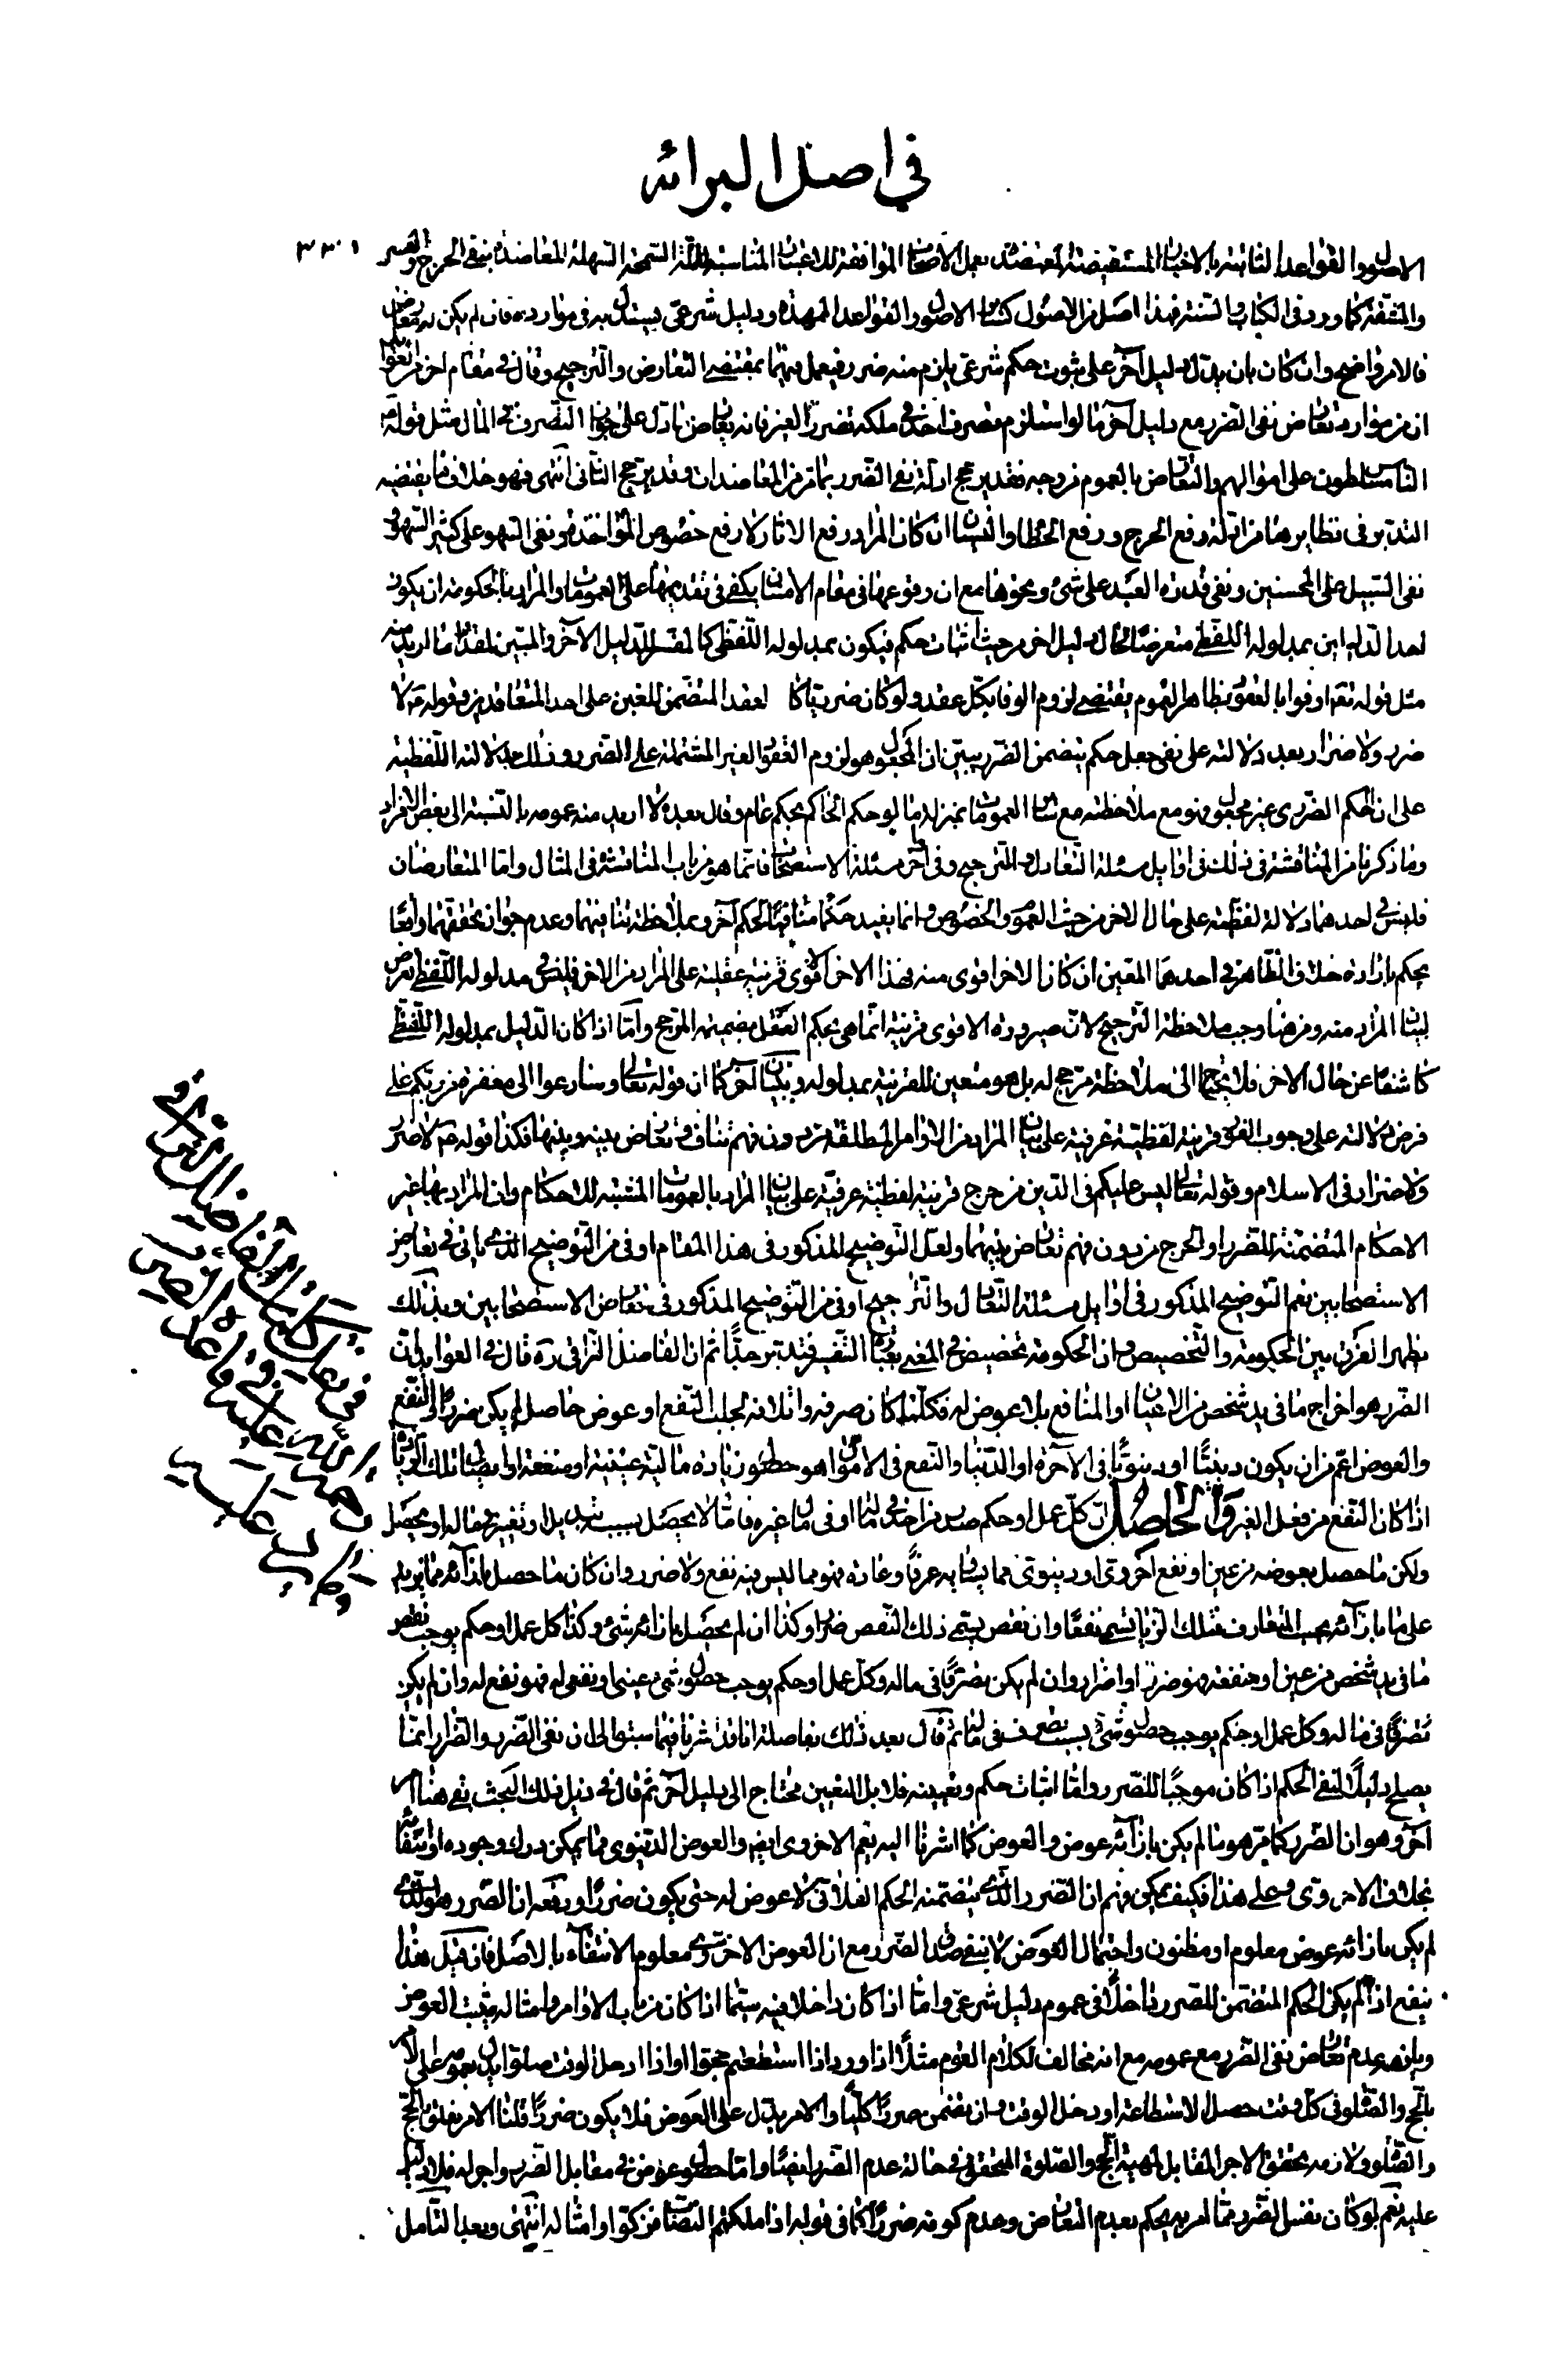 في اصل البرائة
الاصول والقواعد الثابتة بالاخبار المستفيضة المعتضدة بعمل الاصحاب الموافقة للاعتبار المناسبة للملة السمحة السهلة المعاضدة بنفي الحرج والعسر ٣٣٠
والمشقة كما ورد في الكتاب والسنة فهذا اصل من الاصول كسائر الاصول والقواعد الممهدة ودليل شرعي يستدل به في موارده فان لم يكن له معارض
فالامر واضح وان كان بان يدل دليل آخر على ثبوت حكم شرعي يلزم منه ضرر فيعمل فيهما بمقتضى التعارض والترجيح وقال في مقام اخر من العوائد
ان من موارد تعارض نفى الضرر مع دليل آخر ما لو استلزم تصرف احد في ملكه تضرر الغير فانه يعارض ما دل على جواز التصرف في المال مثل قوله
الناس مسلطون على اموالهم والتعارض بالعموم من وجه فقد يرجح ادلة نفى الضرر بما مر من المعاضدات وقد يرجح الثاني انتهى فهو خلاف ما يقتضيه
التدبر في نظايرها من ادلة رفع الحرج ورفع الخطاء والنسيان ان كان المراد رفع الاثار لا رفع خصوص المؤاخذة ونفى السهو على كثير السهو و
نفى السبيل على المحسنين ونفى قدرة العبد على شئ ونحوها مع ان وقوعها في مقام الامتنان يكفي في تقديمها على العمومات والمراد بالحكومة ان يكون
احد الدليلين بمدلوله اللفظي متعرضا لحال دليل اخر من حيث اثبات حكم فيكون بمدلوله اللفظي كالمفسر للدليل الآخر والمبين لمقدار ما اريد منه
مثل قوله تعم اوفوا بالعقود بظاهر العموم يقتضى لزوم الوفا بكل عقد ولو كان ضرريا كالعقد المتضمن للغبن على احد المتعاقدين وقوله ص لا
ضرر ولا ضرار بعد دلالته على نفى جعل حكم يتضمن الضرر يبين ان المجعول هو لزوم العقود الغير المشتملة على الضرر وذلك بدلالته اللفظية
على ان الحكم الضرري غير مجعول فهو مع ملاحظته مع سائر العمومات بمنزلة ما لو حكم الحاكم بحكم عام وقال بعده لا اريد منه عمومه بالنسبة الى بعض الافراد
وما ذكرنا من المناقشة في ذلك في اوايل مسئلة التعادل والترجيح وفي آخر مسئلة الاستصحاب فانما هو من باب المناقشة في المثال واما المتعارضان
فليس في احدهما دلالة لفظية على حال الاخر من حيث العموم والخصوص وانما يفيد حكما منافيا لحكم آخر وبملاحظة تنافيهما وعدم جواز تحققهما واقعا
يحكم بارادة خلاف الظاهر في احدهما المعين ان كان الاخر اقوى منه فهذا الاخر الاقوى قرينة عقلية على المراد من الاخر فليس في مدلوله اللفظي تعرض
لبيان المراد منه ومن هنا وجب ملاحظة الترجيح لان صيرورة الاقوى قرينة انما هي بحكم العقل بضميمة المرجح واما اذا كان الدليل بمدلوله اللفظي
كاشفا عن حال الاخر فلا يحتاج الى ملاحظة مرجح له بل هو متعين للقرينة بمدلوله وببيان آخر كما ان قوله تعالى وسارعوا الى مغفرة من ربكم على
فرض دلالته على وجوب الفور قرينة لفظية عرفية على بيان المراد من الاوامر المطلقة من دون فهم تناف وتعارض بينه وبينها فكذا قوله ص لا ضرر
ولا ضرار في الاسلام وقوله تعالى ليس عليكم في الدين من حرج قرينة لفظية عرفية على بيان المراد بالعمومات المثبتة للاحكام وان المراد بها غير
الاحكام المتضمنة للضرر او الحرج من دون فهم تعارض بينهما ولعل التوضيح المذكور في هذا المقام اوفى من التوضيح الذي ياتي في تعارض
الاستصحابين نعم التوضيح المذكور في اوايل مسئلة التعادل والترجيح اوفى من التوضيح المذكور في تعارض الاستصحابين وبذلك
يظهر الفرق بين الحكومة والتخصيص وان الحكومة تخصيص في المعنى بعبارة التفسير فتدبر جدا ثم ان الفاضل النراقي ره قال في العوايد ان
الضرر هو اخراج ما في يد شخص من الاعيان او المنافع بلا عوض له فكلما كان صرفه واتلافه لجلب النفع او عوض حاصل لم يكن ضررا والنفع
والعوض اعم من ان يكون دينيا او دنيويا في الآخرة او الدنيا والنفع في الاموال هو حصول زيادة مالية عينية او منفعة او ايصال تلك الزيادة
اذا كان النفع من فعل الغير والحاصل ان كل عمل او حكم صدر من احد في ماله او في مال غيره فاما لا يحصل بسبب تبديل او تغيير في ماله او يحصل
ولكن ما حصل بعوضه من عين او نفع اخروي او دنيوي مما يساويه عرفا وعادة فهو مما ليس فيه نفع ولا ضرر وان كان ما حصل بازائه مما يزيد
على ما بازائه بحسب المتعارف فتلك الزيادة تسمى نفعا وان نقص يسمى ذلك النقص ضررا وكذا ان لم يحصل بازائه شئ وكذا كل عمل او حكم يوجب نقص
ما في يد شخص من عين او منفعة فهو ضرر او اضرار وان لم يكن تصرفا في ماله وكل عمل او حكم يوجب حصول شئ عيني او نفعي له فهو نفع له وان لم يكن
تصرفا في ماله وكل عمل او حكم يوجب حصول شئ بسبب تصرف في ماله ثم قال بعد ذلك بفاصلة انا قد اشرنا فيما سبق الى ان نفى الضرر والضرار انما
يصلح دليلا لنفى الحكم اذا كان موجبا للضرر واما اثبات حكم وتعيينه فلا بل التعيين محتاج الى دليل آخر ثم قال في ذيل ذلك البحث بقي هنا امر
آخر وهو ان الضرر كما مر هو ما لم يكن بازائه عوض والعوض كما اشرنا اليه يعم الاخروي ايضا والعوض الدنيوي مما يمكن درك وجوده او انتفائه
بخلاف الاخروي وعلى هذا فكيف يمكن فهم ان الضرر الذي يتضمنه الحكم الفلاني لا عوض له حتى يكون ضررا ورفعه ان الضرر هو الذي
لم يكن بازائه عوض معلوم او مظنون واحتمال العوض لا ينفي صدق الضرر مع ان العوض الاخروي معلوم الانتفاء بالاصل فان قيل هذا
ينفع اذا لم يكن الحكم المتضمن للضرر داخلا في عموم دليل شرعي واما اذا كان داخلا فيه سيما اذا كان من باب الاوامر وامثاله يثبت العوض
ويلزمه عدم تعارض نفى الضرر مع عمومه مع انه مخالف لكلام القوم مثلا اذا ورد اذا استطعتم حجوا او اذا دخل الوقت صلوا يدل بعمومه على الامر
بالحج والصلوة في كل وقت حصل الاستطاعة او دخل الوقت وان تضمن ضررا كليا والامر يدل على العوض فلا يكون ضررا قلنا الامر تعلق بالحج
والصلوة ولازمه تحقق الاجر المقابل لمهية الحج والصلوة المتحقق في حالة عدم الضرر ايضا واما حصول عوض في مقابل الضرر واجر له فلا دليل
عليه نعم لو كان نفس الضرر مما امر به يحكم بعدم التعارض وعدم كونه ضررا كما في قوله اذا ملكتم النصاب فزكوا وامثاله انتهى وبعد التامل